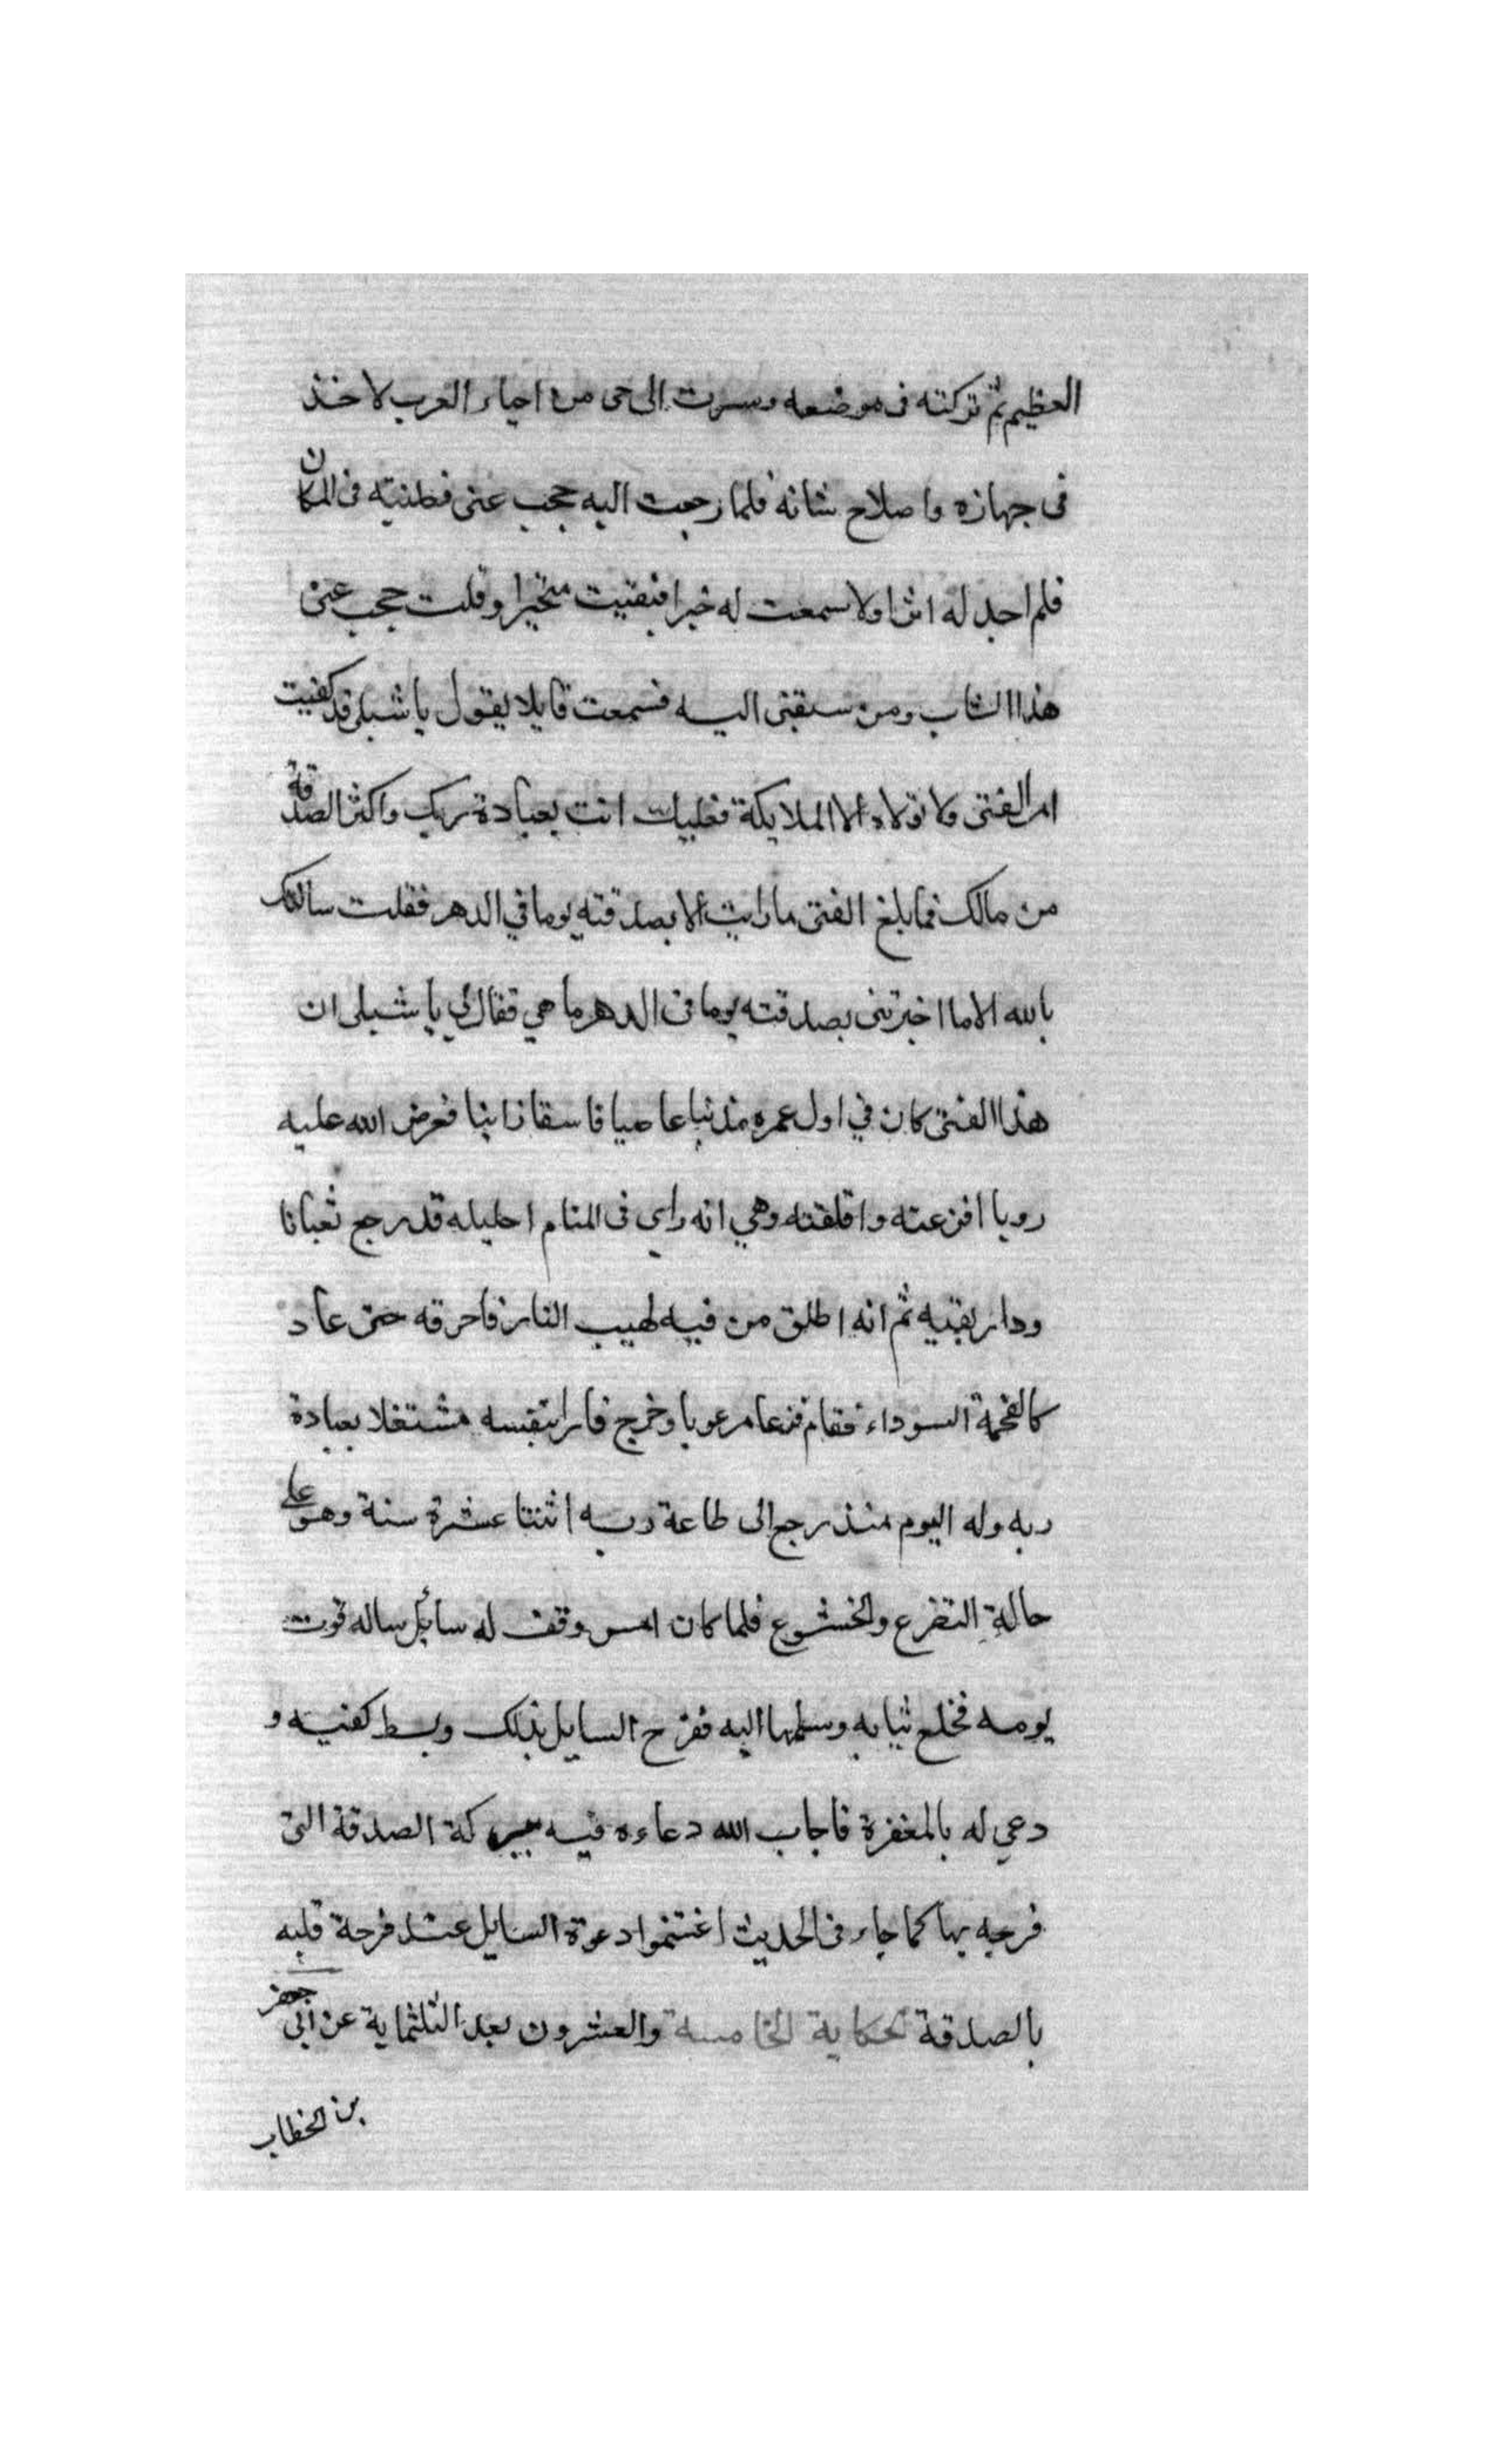 العظيم ثم تركته في موضعه وسرت الى حى من احياء العرب لاخذ
فى جهازه واصلاح شانه فلما رجعت اليه حجب عنى فطلبته فى المكان
فلم اجد له اثرا ولا سمعت له خبرا فبقيت متحيرا وقلت حجب عنى
هذا الشاب ومن سبقنى اليه فسمعت قايلا يقول يا شبلى قد كفيت
امر الفتى ولا تولاه الا الملايكة فعليك انت بعبادة ربك واكثر الصدقة
من مالك فما بلغ الفتى ما رايت الا بصدقته يوما في الدهر فقلت سالتك
بالله الاما اخبرتنى بصدقته يوما فى الدهر ما هي فقال لي يا شبلى ان
هذا الفتى كان في اول عمره مذنبا عاصيا فاسقا زانيا فعرض الله عليه
رويا افزعته واقلقته وهي انه راى فى المنام احليله قد رجع ثعبانا
ودار بفيه ثم انه اطلق من فيه لهيب النار فاحرقه حتى عاد
كالفحمة السوداء فقام فزعا مرعوبا وخرج فارا بنفسه مشتغلا بعبادة
ربه وله اليوم منذ رجع الى طاعة ربه اثنتا عشرة سنة وهو على
حالة التضرع والخشوع فلما كان امس وقف له سائل ساله قوت
يومه فخلع ثيابه وسلمها اليه ففرح السايل بذلك وبسط كفيه و
دعي له بالمغفرة فاجاب الله دعاءه فيه ببركة الصدقة التى
فرحه بها كما جاء فى الحديث اغتنموا دعوة السايل عند فرحة قلبه
بالصدقة الحكاية الخامسة والعشرون بعد الثلثماية عن ابي جعفر
بن الخطاب